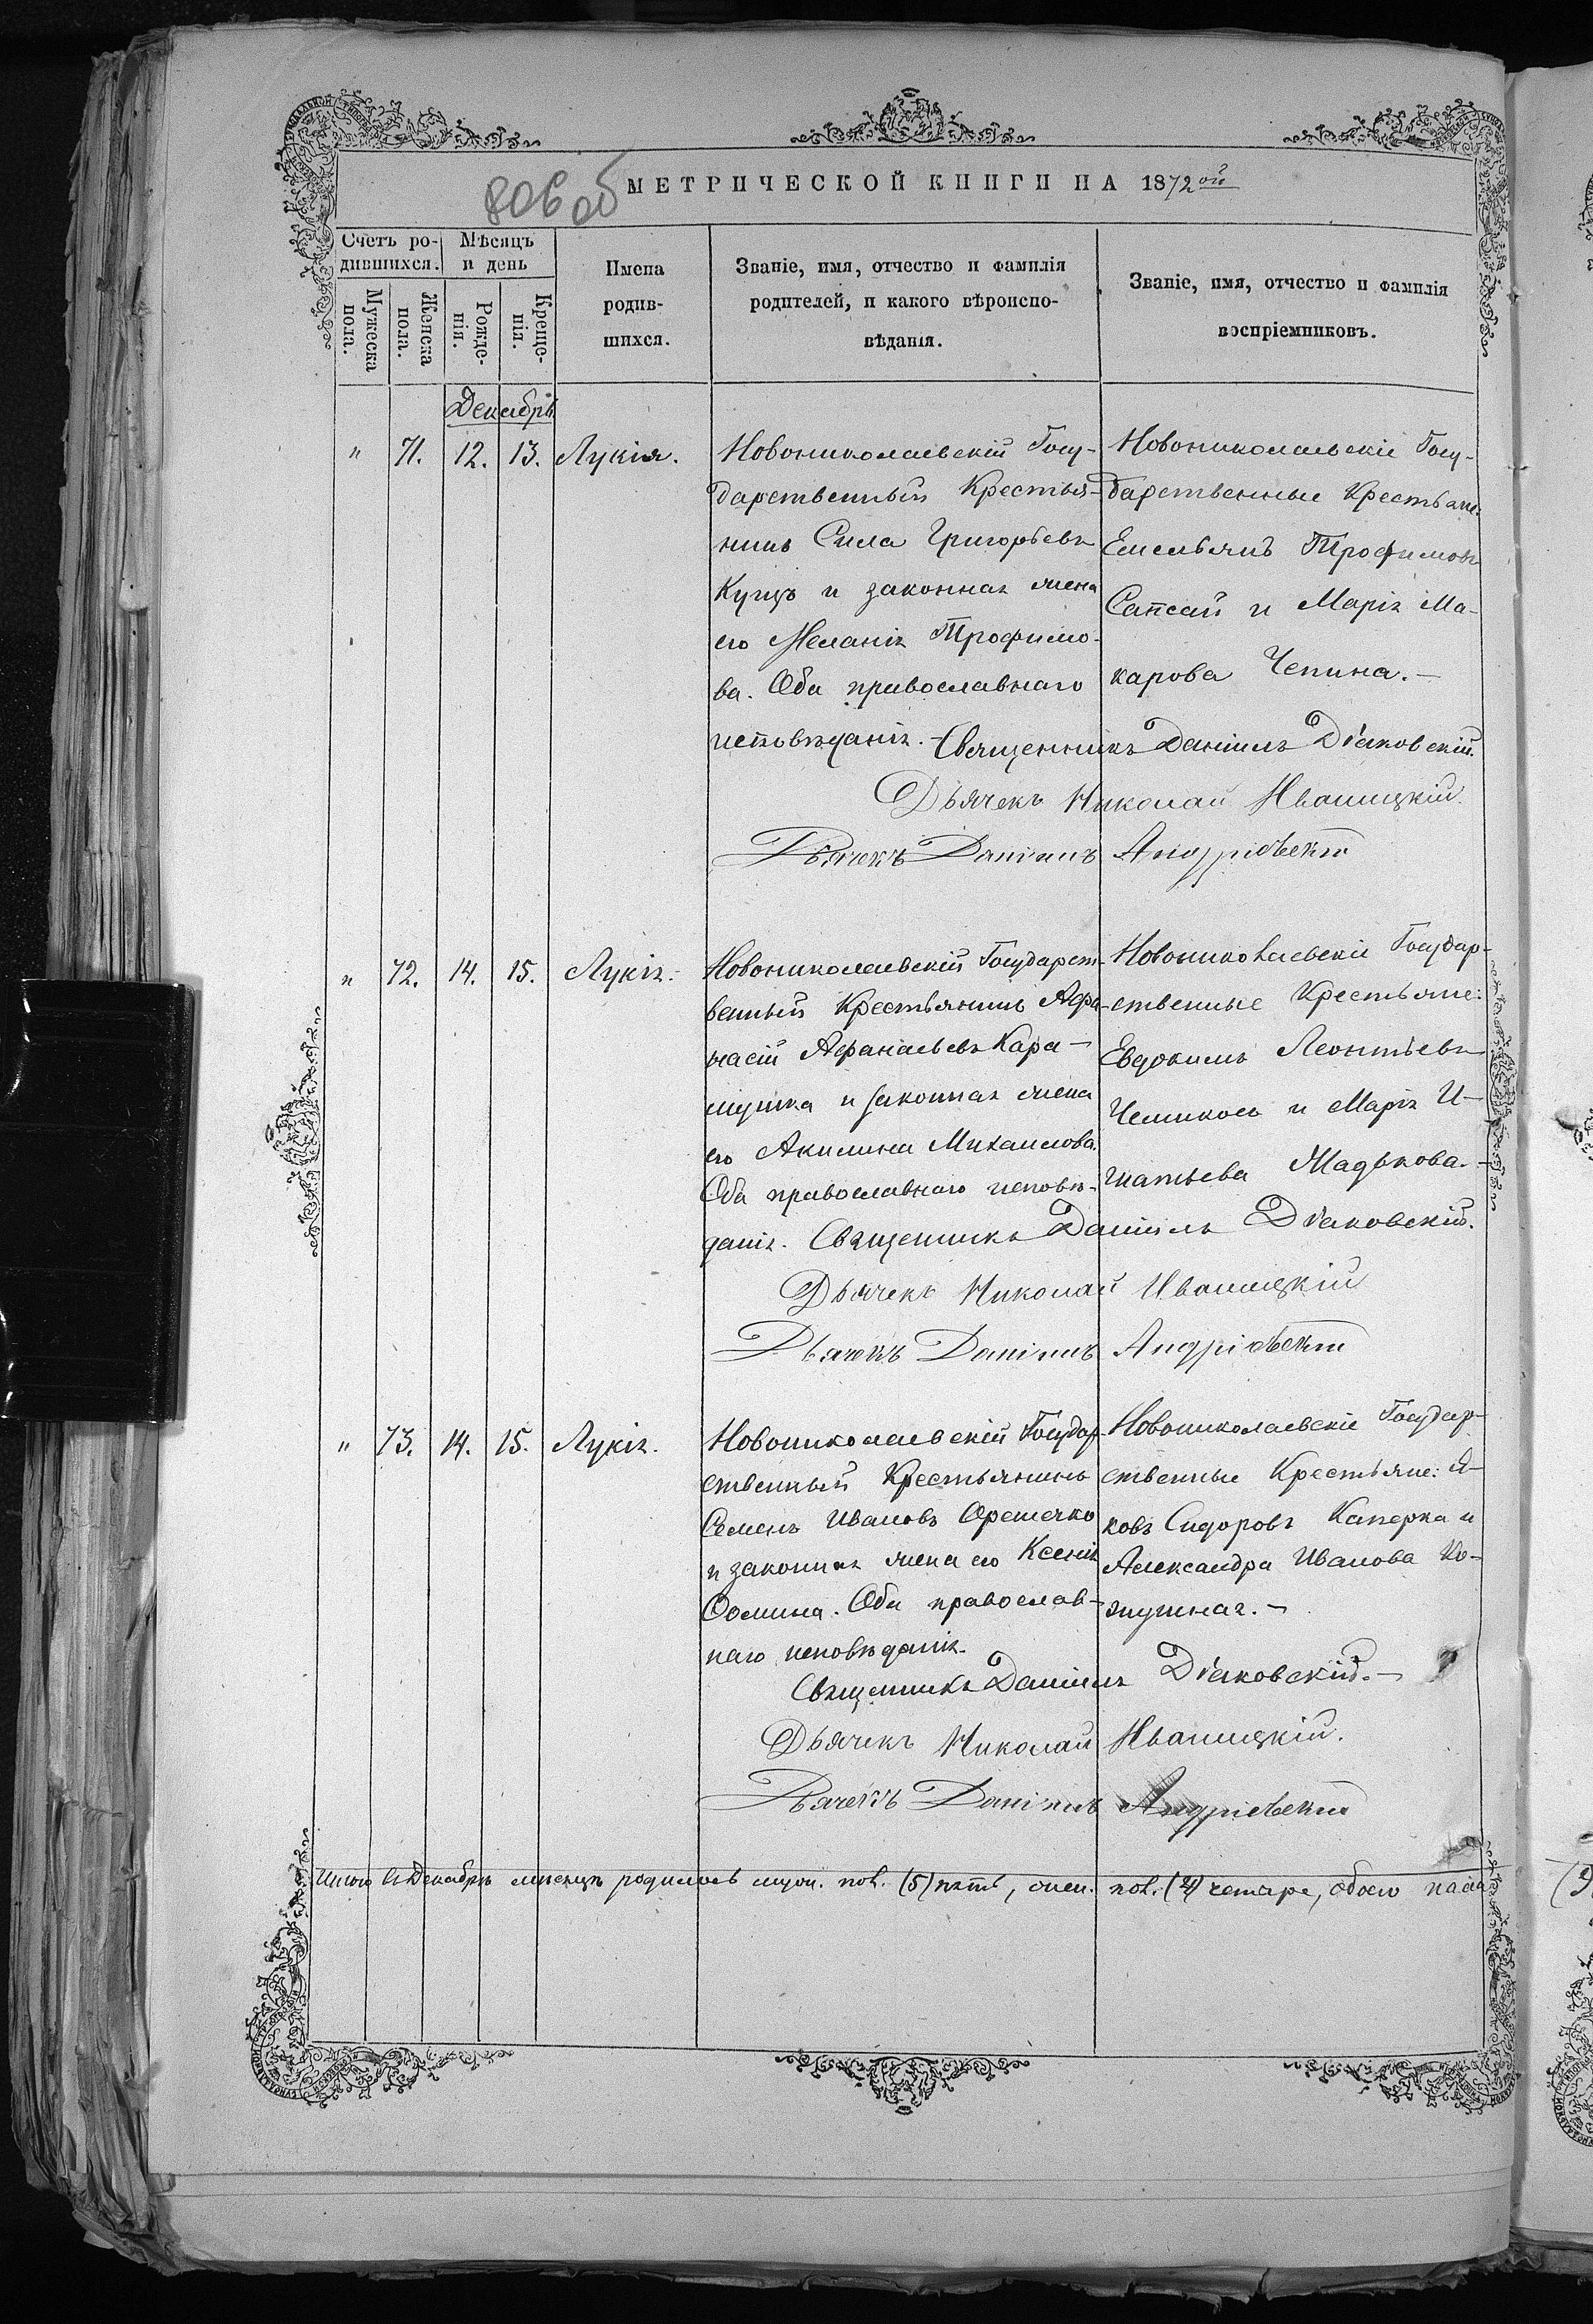 806 об
МЕТРИЧЕСКОЙ КНИГИ НА 1872ой
Счетъ ро-
дившихся.
Мѣсяцъ
и день
Мужеска
пола.
Женска
пола.
Рожде-
нія.
Креще-
нія.
Имена
родив-
шихся.
Званіе, имя, отчество и фамилія
родителей, и какого вѣроиспо-
вѣданія.
Званіе, имя, отчество и фамилія
воспріемниковъ.
Декабрь
" 71. 12. 13. Лукія.
Новониколаевскій Госу-
дарственный Крестья-
нинъ Сила Григорьевъ
Куцъ и законная жена
его Меланія Трофимо-
ва. Оба православнаго
исповѣданія.
Новониколаевскіе Госу-
дарственные Крестьяне:
Емельянъ Трофимовъ
Сапсай и Марія Ма-
карова Чепина.
Священникъ Даніилъ Діаковскій.
Дьячекъ Николай Иваницкій.
Дьячекъ Даніилъ Андріевскій
" 72. 14. 15. Лукія.
Новониколаевскій Государст-
венный Крестьянинъ Афа-
насій Афанасьевъ Кара-
и законная жена
его Акилина Михаилова.
Оба православнаго исповѣ-
данія.
Новониколаевскіе Государ-
ственные Крестьяне:
Евдокимъ Леонтьевъ
и Марія И-
гнатьева
Священникъ Даніилъ Діаковскій.
Дьячекъ Николай Иваницкій
Дьячекъ Даніилъ Андріевскій
" 73. 14. 15. Лукія.
Новониколаевскій Государ-
ственный Крестьянинъ
Семенъ Ивановъ Орешечко
и законная жена его Ксенія
Ѳомина. Оба православ-
наго исповѣданія.
Новониколаевскіе Государ-
ственные Крестьяне: Я-
ковъ Сидоровъ Каперка и
Александра Иванова Ко-
жушная.
Священникъ Даніилъ Діаковскій.
Дьячекъ Николай Иваницкій.
Дьячекъ Даніилъ Андріевскій
Итого въ Декабрѣ мѣсяцѣ родилось муж. пол. (5) пять, жен. пол. (4) четыре, обоего пола